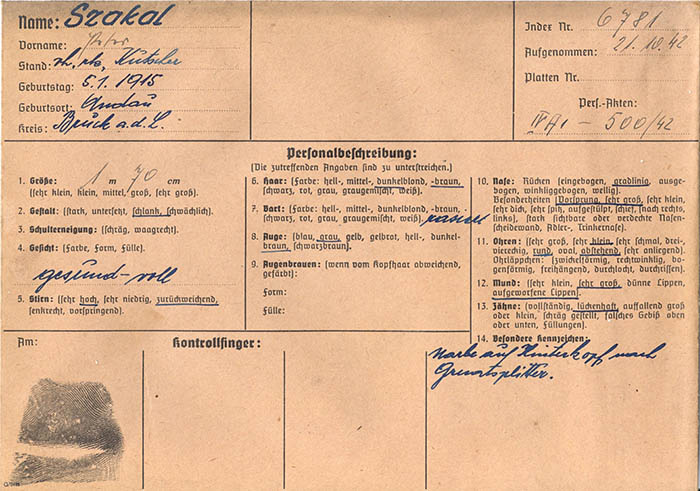 Name: Szakal
Vorname: Peter
Stand: rk., Kutscher
Geburtstag: 5.1.1915
Geburtsort: Andau
Kreis: Bruck a.d.L.
Index Nr. 6781
Aufgenommen: 21.10.42
Platten Nr.
Pers.-Akten:
500/42
1. Größe: 1 m 70 cm
(sehr klein, klein, mittel, groß, sehr groß).
2. Gestalt: (stark, untersetzt, schlank, schwächlich).
3. Schulterneigung: (schräg, waagrecht).
4. Gesicht: (Farbe, Form, Fülle).
gesund-voll
5. Stirn: (sehr hoch, sehr niedrig, zurückweichend,
senkrecht, vorspringend).
Personalbeschreibung:
(Die zutreffenden Angaben sind zu unterstreichen.)
6. Haar: (Farbe: hell-, mittel-, dunkelblond, -braun,
schwarz, rot, grau, graugemischt, weiß).
7. Bart: (Farbe: hell-, mittel-, dunkelblond, -braun,
schwarz, rot, grau, graugemischt, weiß).
8. Auge: (blau, grau, gelb, gelbrot, hell-, dunkel-
braun, schwarzbraun).
9. Augenbrauen: (wenn vom Kopfhaar abweichend,
gefärbt):
Form:
Fülle:
10. Nase: Rücken (eingebogen, gradlinig, ausge-
bogen, winkliggebogen, wellig).
Besonderheiten (Vorsprung, sehr groß, sehr klein,
sehr dick, sehr spitz, aufgestülpt, schief, nach rechts,
links), stark sichtbare oder verdeckte Nasen-
scheidewand, Adler-, Trinkernase).
11. Ohren: (sehr groß, sehr klein, sehr schmal, drei-
viereckig, rund, oval, abstehend, sehr anliegend).
Ohrläppchen: (zwickelförmig, rechtwinklig, bo-
genförmig, freihängend, durchlocht, durchrissen).
12. Mund: (sehr klein, sehr groß, dünne Lippen,
aufgeworfene Lippen).
13. Zähne: (vollständig, lückenhaft, auffallend groß
oder klein, schräg gestellt, falsches Gebiß oben
oder unten, Füllungen).
14. Besondere Kennzeichen:
Narbe auf Hinterkopf nach
Granatsplitter.
Am:
Kontrollfinger: